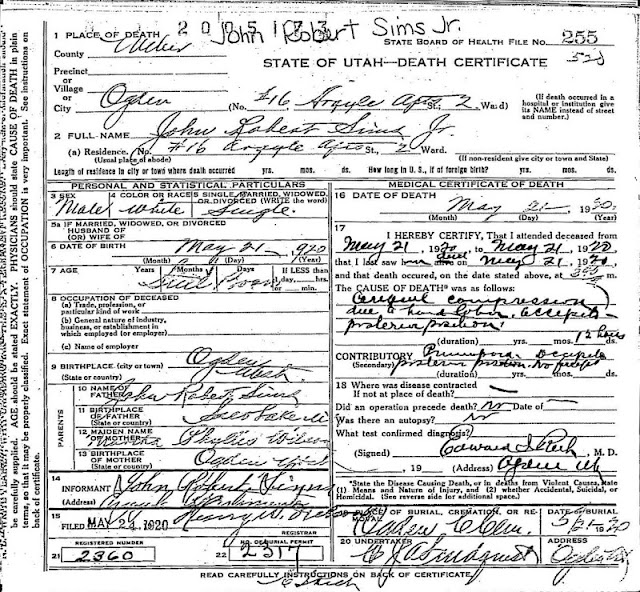 2005173
John Robert Sims Jr.
1 PLACE OF DEATH
STATE BOARD OF HEALTH FILE No. 255
County Weber
STATE OF UTAH—DEATH CERTIFICATE
Precinct or
Village or
City Ogden (No. #16 Argyle Apts St., 2 Ward)
(If death occurred in a hospital or institution give its NAME instead of street and number.)
2 FULL NAME John Robert Sims Jr.
(a) Residence, No. #16 Argyle Apts St., 2 Ward.
(Usual place of abode) (If non-resident give city or town and State)
Length of residence in city or town where death occurred yrs. mos. ds. How long in U. S., if of foreign birth? yrs. mos. ds.
PERSONAL AND STATISTICAL PARTICULARS
3 SEX Male
4 COLOR OR RACE White
5 SINGLE, MARRIED, WIDOWED, OR DIVORCED (WRITE the word) Single
5a IF MARRIED, WIDOWED, OR DIVORCED
HUSBAND OF
(OR) WIFE OF
6 DATE OF BIRTH May 21 1920
(Month) (Day) (Year)
7 AGE Years Months Days If LESS than 1 day, hrs. or min.
Still Born
8 OCCUPATION OF DECEASED
(a) Trade, profession, or particular kind of work
(b) General nature of industry, business, or establishment in which employed (or employer)
(c) Name of employer
9 BIRTHPLACE (city or town) Ogden
(State or country) Utah
PARENTS
10 NAME OF FATHER John Robert Sims
11 BIRTHPLACE OF FATHER Salt Lake
(State or country)
12 MAIDEN NAME OF MOTHER Phyllis Wilson
13 BIRTHPLACE OF MOTHER Ogden Utah
(State or country)
14 INFORMANT John Robert Sims
(Address)
15 FILED MAY 24 1920 Henry W.
REGISTRAR
21 REGISTERED NUMBER 2360
22 NO. OF BURIAL PERMIT 2317
MEDICAL CERTIFICATE OF DEATH
16 DATE OF DEATH May 21 1920.
(Month) (Day) (Year)
17 I HEREBY CERTIFY, That I attended deceased from
May 21 1920, to May 21 1920
that I last saw him alive on May 21, 1920
and that death occurred, on the date stated above, at m.
The CAUSE OF DEATH* was as follows:
Cerebral compression
due to hard labor. Occipito
posterior position.
(duration) yrs. mos. ds. 12 hours
CONTRIBUTORY Occipito
(Secondary) posterior position. No forceps
(duration) yrs. mos. ds.
18 Where was disease contracted
If not at place of death?
Did an operation precede death? no Date of
Was there an autopsy? no
What test confirmed diagnosis?
(Signed) Edward I. Rich, M. D.
, 19 (Address) Ogden Ut
*State the Disease Causing Death, or in deaths from Violent Causes, state (1) Means and Nature of Injury, and (2) whether Accidental, Suicidal, or Homicidal. (See reverse side for additional space.)
19 PLACE OF BURIAL, CREMATION, OR REMOVAL Ogden Cem.
DATE OF BURIAL
20 UNDERTAKER Lindquist
ADDRESS Ogden
READ CAREFULLY INSTRUCTIONS ON BACK OF CERTIFICATE.